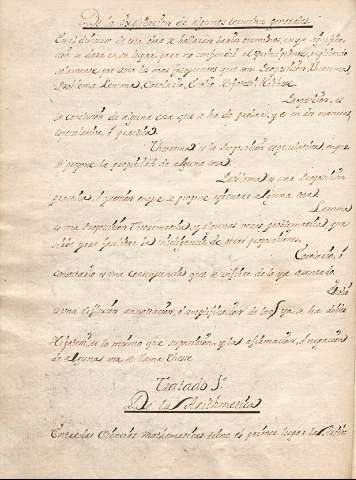 De la Explicacion de algunos terminos generales
En el discurso de esta obra se hallaran varios nombres, cuya explicacion
con se dara en su lugar, para no confundir al
solamente, por aora los mas frequentes que son Proposicion, Theorema
Problema, Lemma, Corolario, Escolio, Hipotesi,
Proposicion, es
la conclusion de alguna cosa que se ha de probar; y es en dos maneras
especulativa, ó practica
Theorema es la Proposicion especulativa, en que
se propone la propiedad de alguna cosa.
Problema es una Proposicion
practica, ó question en que se propone executar alguna cosa.
Lemma
es una Proposicion Theorematica, y algunas veces problematica que
sirve para facilitar la inteligencia de otras proposiciones.
Corolario, ó
consectario es una consequencia que se infiere de lo ya
Escolio
es una reflexion annotacion, ó amplificacion de lo q ya se ha dicho
Hipotesi, es lo mismo que suposicion, y la afirmacion, ó negacion
de algunas se llama These.
Tratado 1º
De la Arithmetica
Entre las Ciencias Mathematicas tiene el primer lugar la Arith